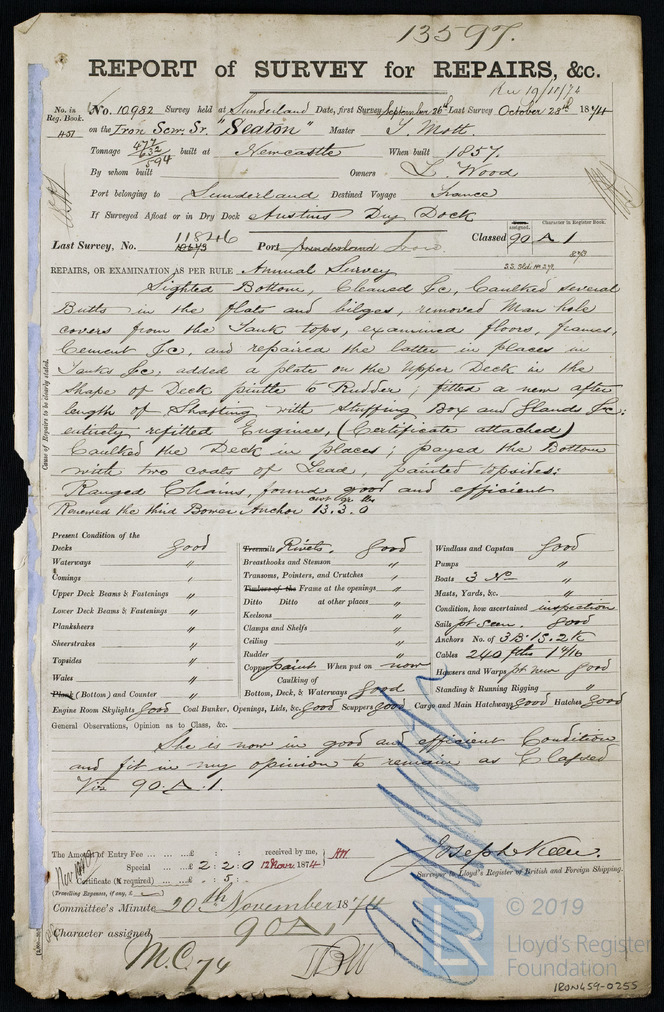 13597.
REPORT of SURVEY for REPAIRS, &c.
Rec 19/11/74
No. in Reg. Book. No. 10982 Survey held at Sunderland Date, first Survey September 26th Last Survey October 28th 1874
457 on the Iron Scrw. Sr. "Seaton" Master T. Mott
Tonnage 477 632 594 built at Newcastle When built 1857.
By whom built Owners L. Wood
Port belonging to Sunderland Destined Voyage France
If Surveyed Afloat or in Dry Dock Austins Dry Dock
Last Survey, No. 11846 Port Sunderland Classed 90 A 1
assigned. Character in Register Book.
REPAIRS, OR EXAMINATION AS PER RULE Annual Survey
Cause of Repairs to be clearly stated.
Sighted Bottom, Cleaned &c, Caulked several
Butts in the flats and bilges, removed Man hole
covers from the Tank tops, examined floors, frames,
Cement &c, and repaired the latter in places in
Tanks &c; added a plate on the Upper Deck in the
shape of Deck pintle to Rudder; fitted a new after
length of Shafting with Stuffing Box and Glands &c:
entirely refitted Engines, (Certificate attached)
Caulked the Deck in places; payed the Bottom
with two coats of Lead, painted topsides:
Ranged Chains, found good and efficient
cwt qr lbs
Renewed the third Bower Anchor 13.3.0
Present Condition of the
Decks Good
Waterways "
Comings "
Upper Deck Beams & Fastenings "
Lower Deck Beams & Fastenings "
Planksheers "
Sheerstrakes "
Topsides "
Wales "
Plank (Bottom) and Counter "
Treenails Rivets. Good
Breasthooks and Stemson "
Transoms, Pointers, and Crutches "
Timbers of the Frame at the openings "
Ditto Ditto at other places "
Keelsons "
Clamps and Shelfs "
Ceiling "
Rudder "
Copper paint When put on now
Caulking of
Bottom, Deck, & Waterways Good
Windlass and Capstan Good
Pumps "
Boats 3 No "
Masts, Yards, &c. "
Condition, how ascertained inspection
Sails pt seen. Good
Anchors No. of 3 B. 1 S. 2 K
Cables 240 fths 1 9/16
Hawsers and Warps pt new Good
Standing & Running Rigging "
Engine Room Skylights Good Coal Bunker, Openings, Lids, &c. Good Scuppers good Cargo and Main Hatchways Good Hatches Good
General Observations, Opinion as to Class, &c.
She is now in good and efficient Condition
and fit in my opinion to remain as Classed
Viz 90. A. 1.
The Amount of Entry Fee ... ... £ : : received by me,
Special ... ... £ 2 : 2 : 0 12 Novr 1874
Certificate (if required) ... £ . : 5 :
(Travelling Expenses, if any, £ )
Joseph Keen.
Surveyor to Lloyd's Register of British and Foreign Shipping.
Committee's Minute 20th November 1874
Character assigned 90 A 1
M.C. 74
LR
© 2019
Lloyd's Register
Foundation
IRON459-0255